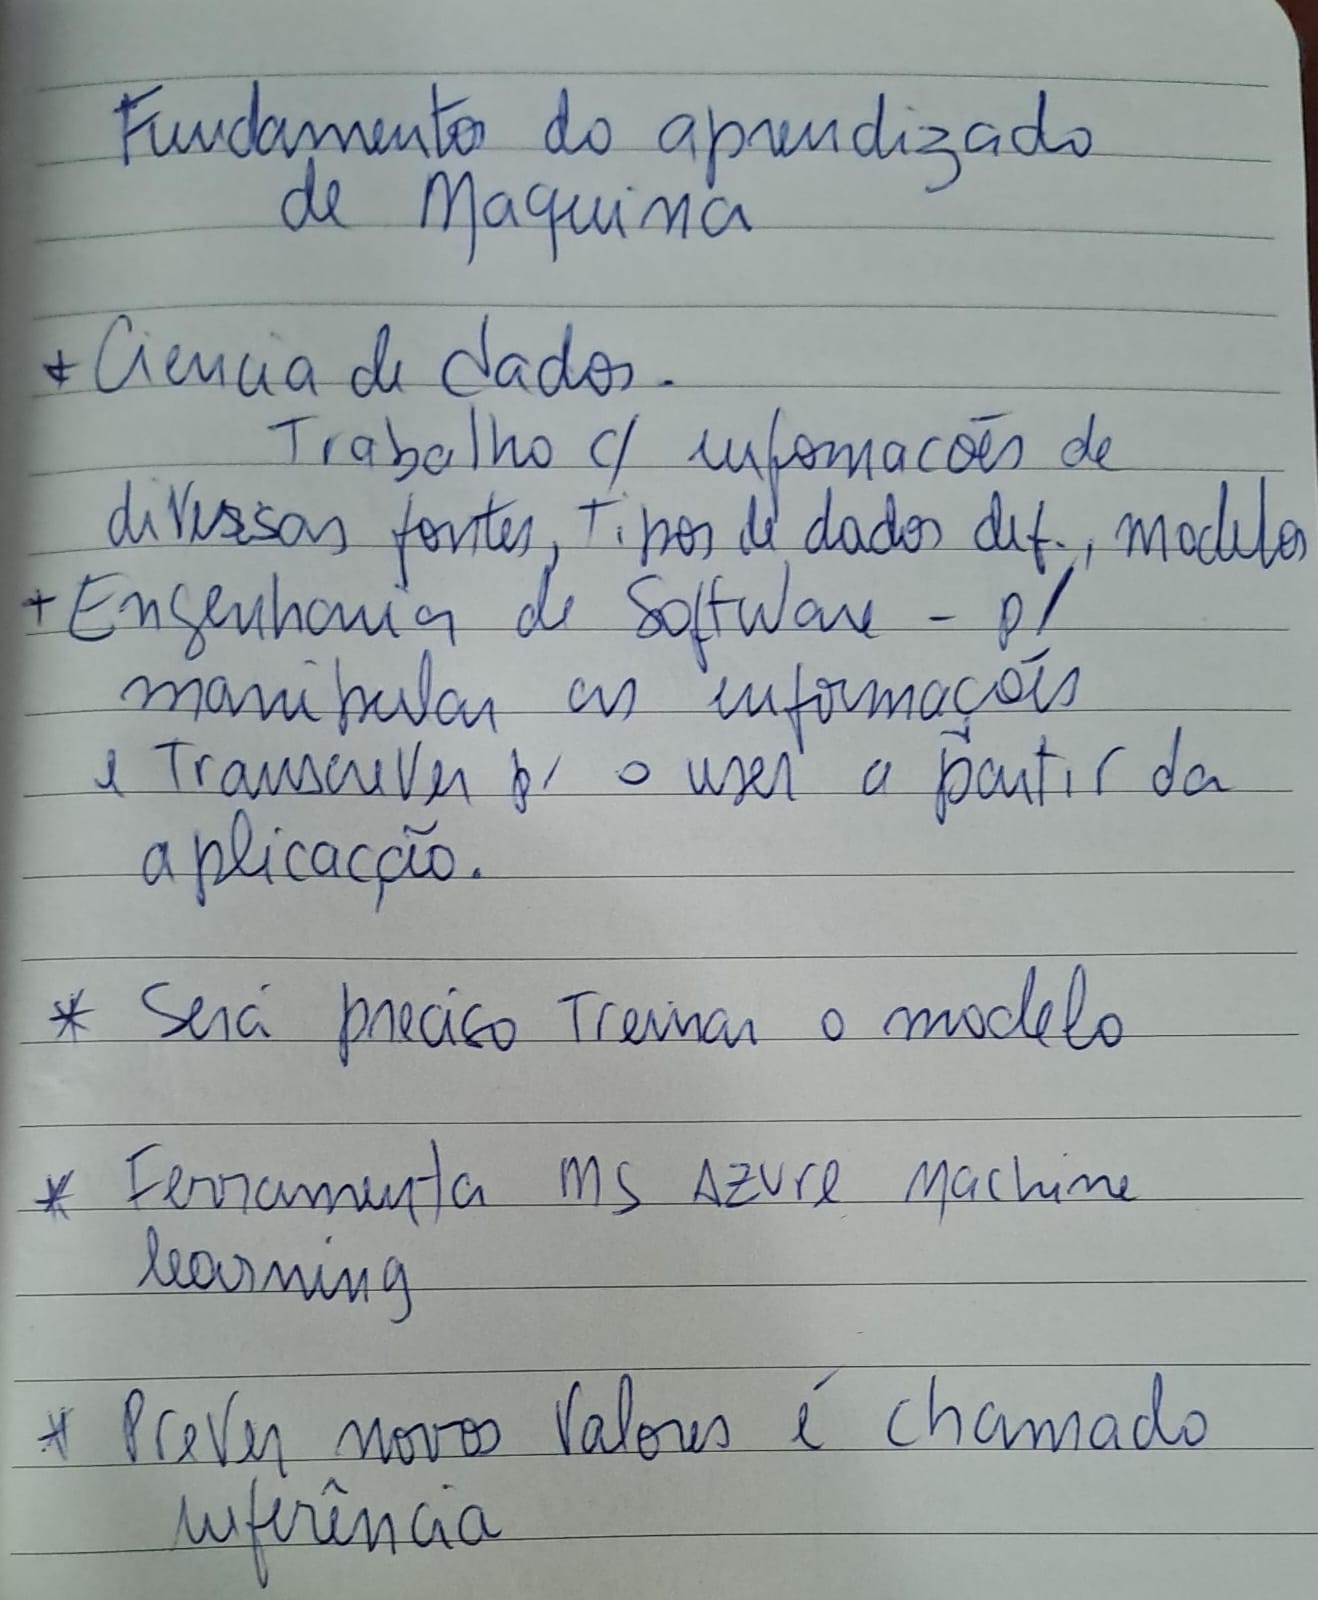 Fundamentos do aprendizado
de Maquina
* Ciencia de dados.
Trabalho c/ infomacões de
diversas fontes, Tipos de dados dif., modelos
+ Engenharia de Software - p/
manipular as informações
e Transcrever p/ o user a partir da
aplicacção.
* Será preciso Treinar o modelo
* Ferramenta MS AZURE Machine
learning
* Prever novos valores é chamado
inferência